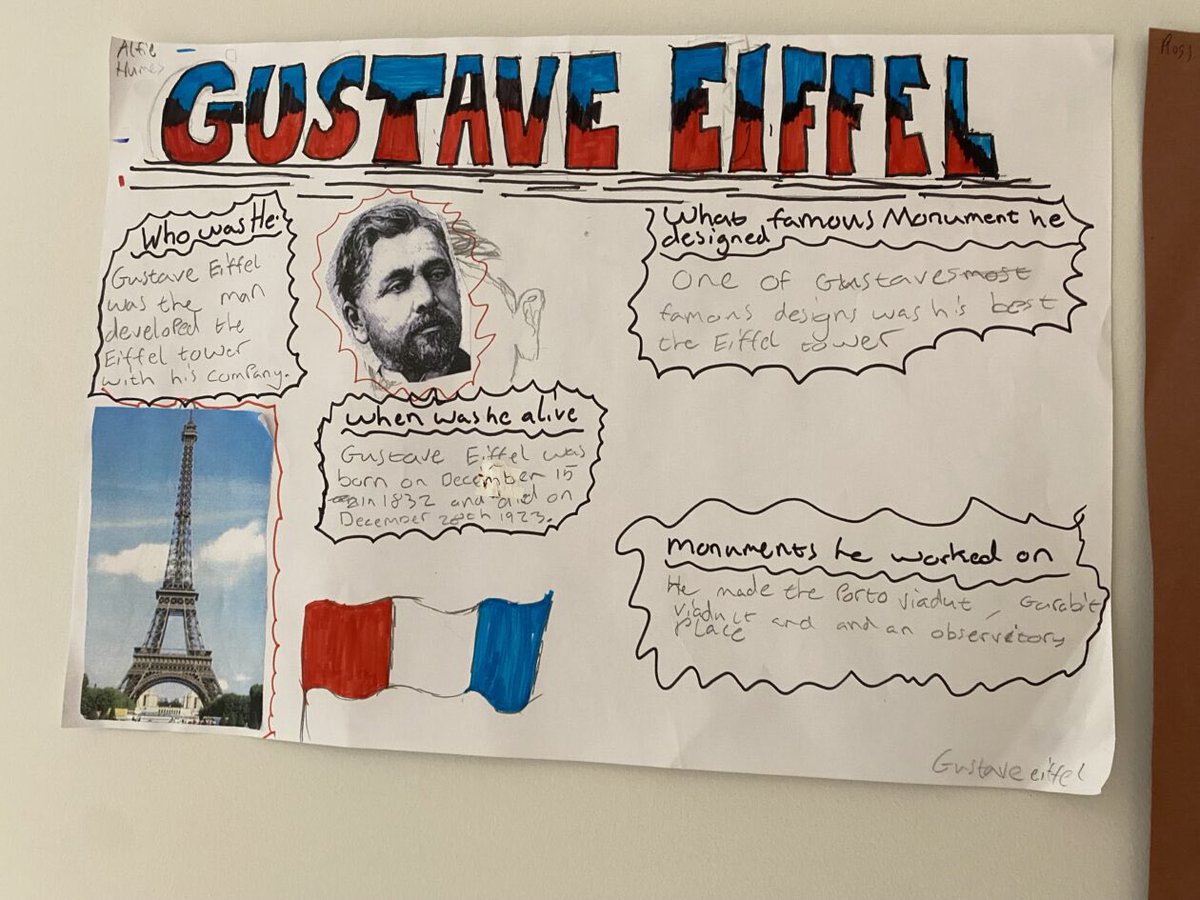 Alfie
Humes
GUSTAVE EIFFEL
Who was He.
Gustave Eiffel
was the man
developed the
Eiffel tower
with his company.
What famous Monument he
designed
One of Gustaves most
famous designs was his best
the Eiffel tower
when was he alive
Gustave Eiffel was
born on December 15
in 1832 and died on
December 28th 1923.
Monuments he worked on
He made the Porto viadut, Garabit
viaduct and and an observitory
Place
Gustave eiffel
Ross